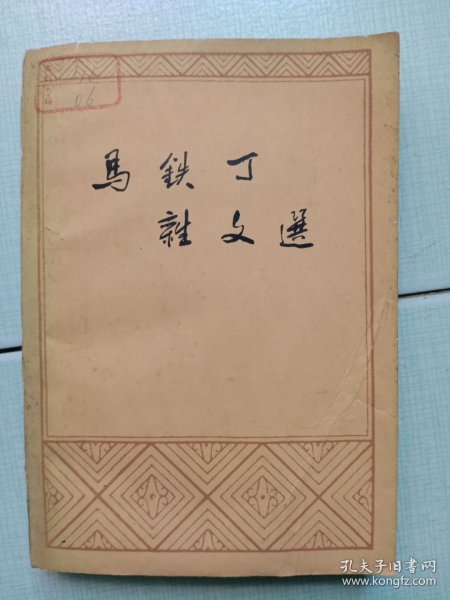 馬 鉄 丁
雜 文 選
孔夫子旧书网
www.kongfz.com